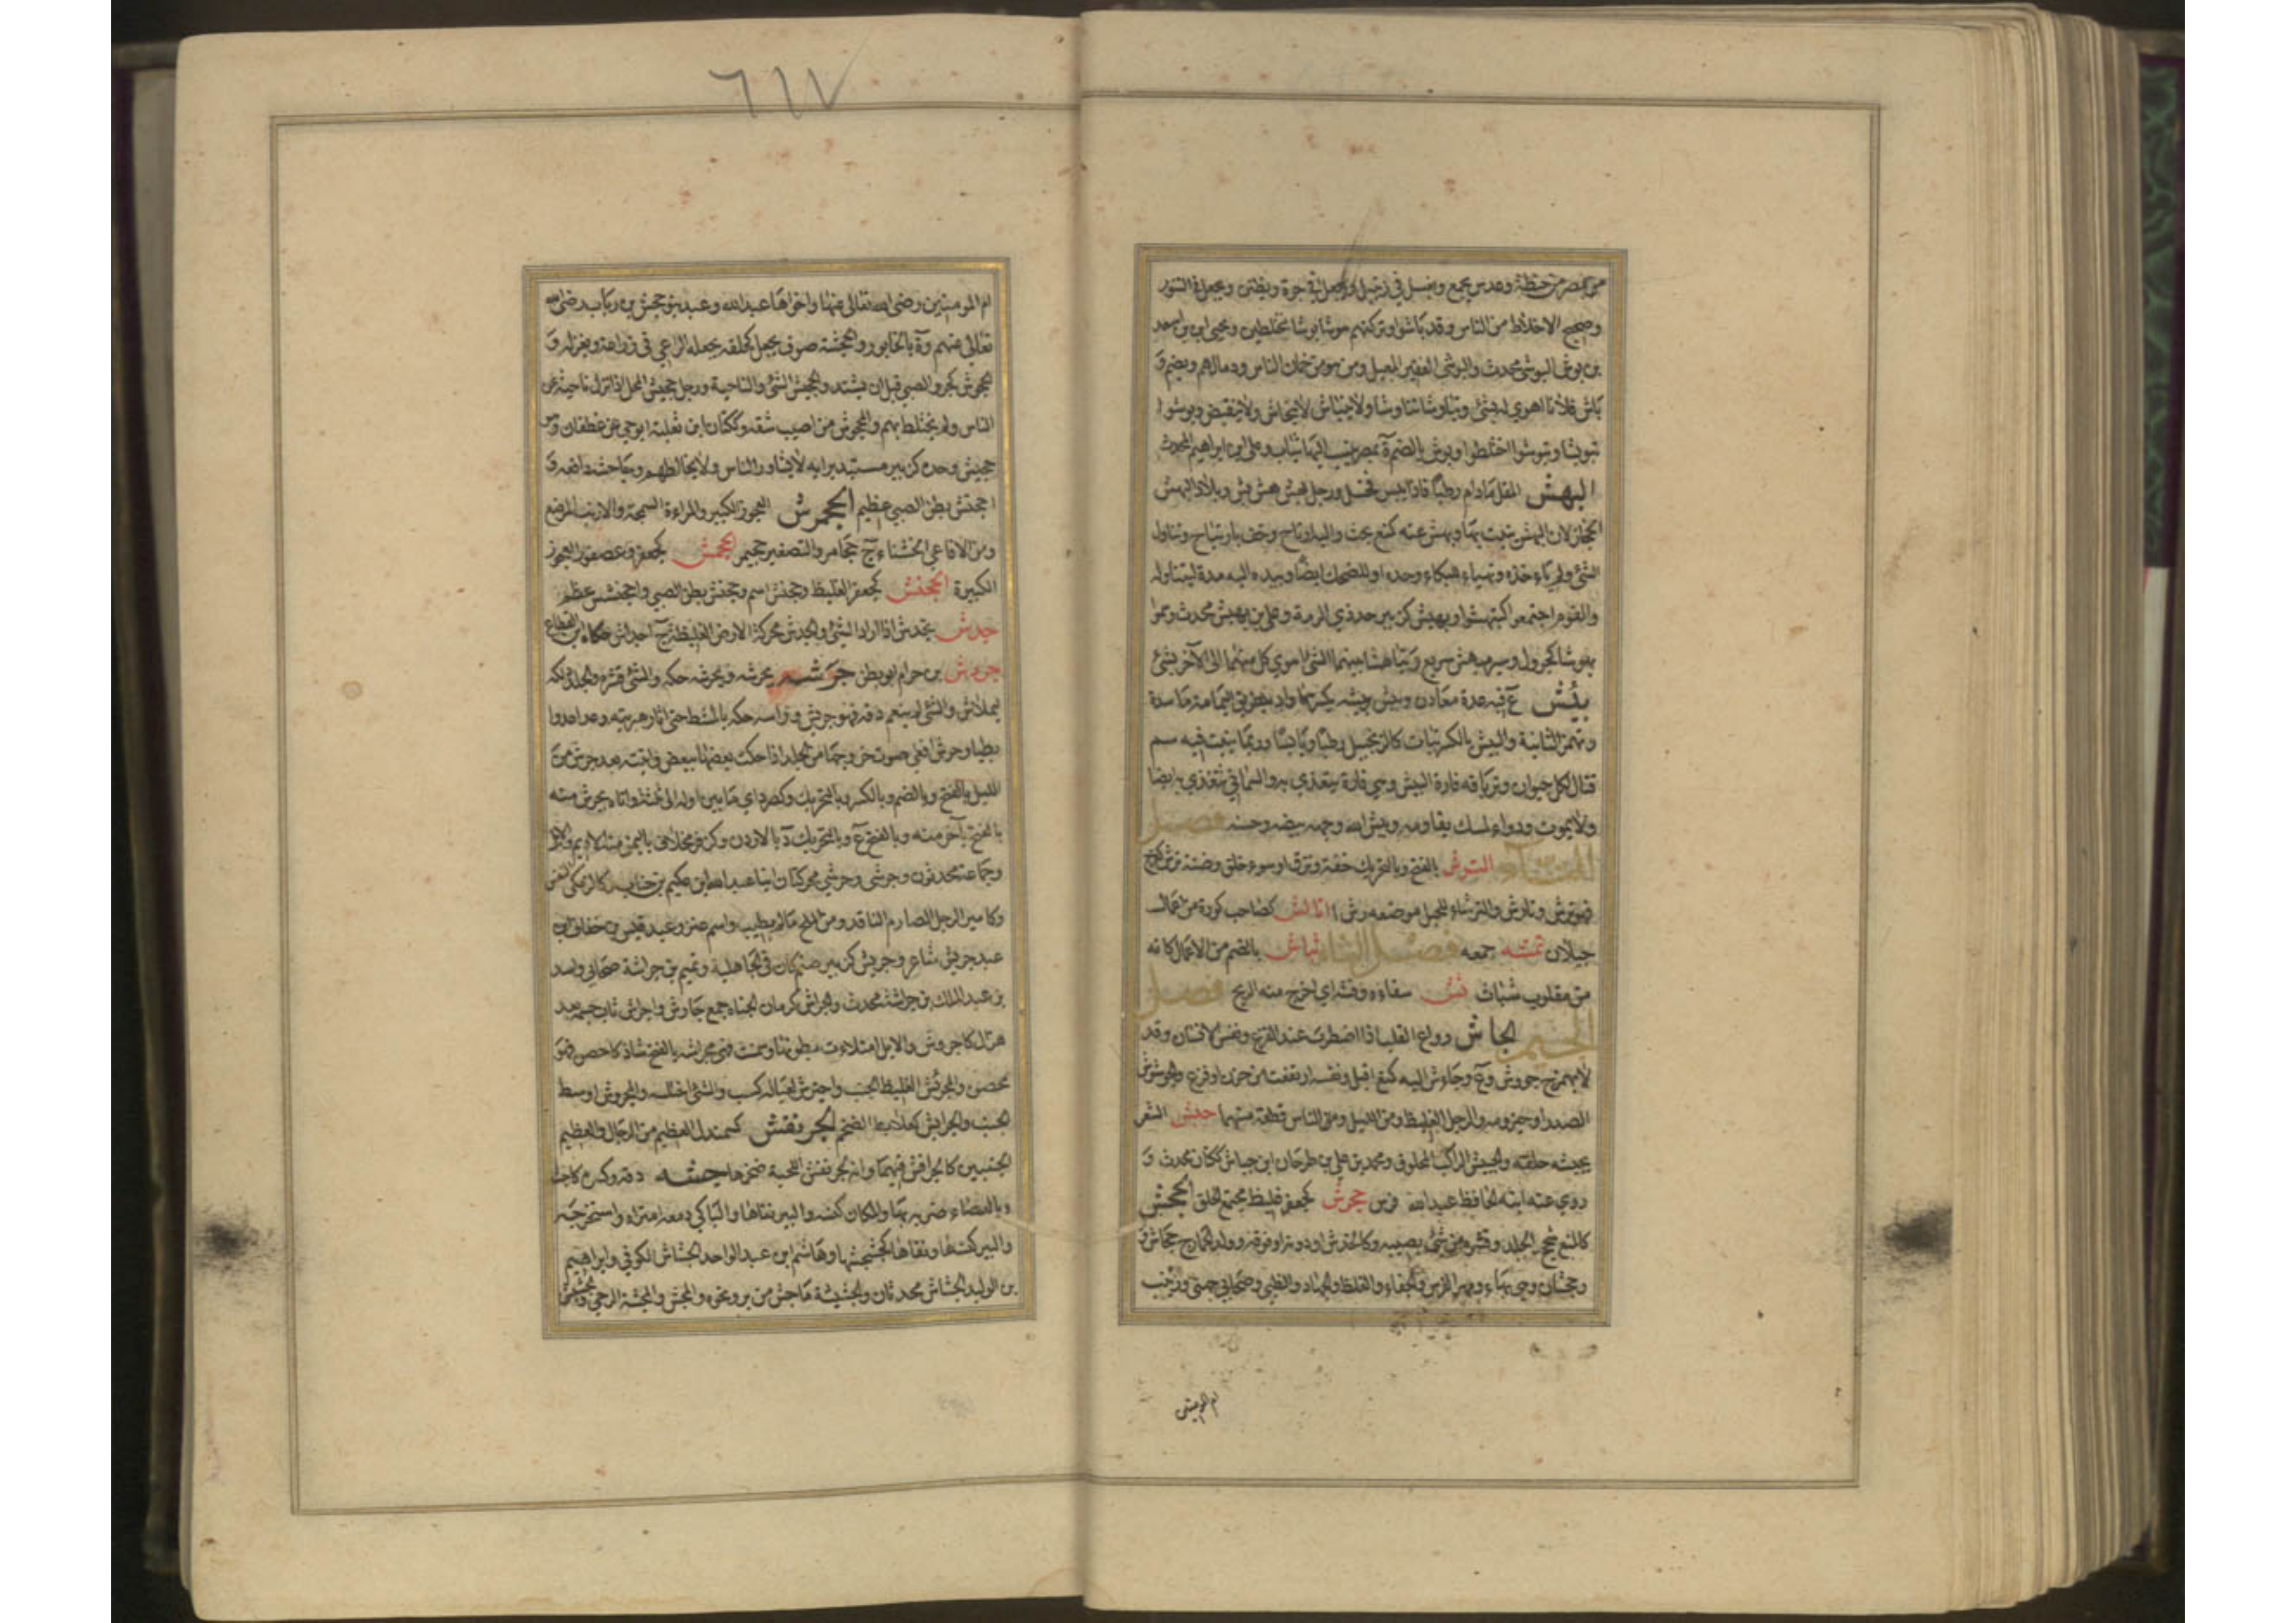 ٦١٧
من مصر من حنطة وعدس يجمع ويغسل في زنبيل ويجعل في جرة ويطين ويجعل في التنور
وضجيج الاخلاط من الناس وقد باشوا وتركتهم هوشا بوشا مختلطين ويحيى ابن اسعد
بن بوش البوشي محدث والبوشي الفقير المعيل ومن هو من خمان الناس ودهمائهم ويضم و
باش فلانا اهوى له بشئ وتباوشا تناوشا ولا ينباش لا ينحاش ولا ينقبض وبوشوا
تبويشا وتبوشوا اختلطوا وبوش بالضم ة بمصر ينسب اليها ثياب وعلى ابن ابراهيم المحدث
البهش المقل مادام رطبا فاذا يبس فخشل ورجل بهش هش بش وبلاد البهش
الحجاز لان البهش ينبت بها وبهش عنه كمنع بحث واليه ارتاح وخف بارتياح وتناول
الشئ ولم ياخذه وتهياء للبكاء وحده او للضحك ايضا وبيده اليه مدها ليتناوله
والقوم اجتمعوا كتبهشوا وبهيش كزبير جد ذي الرمة وعلي بن بهيش محدث وعمرا
بهوش كجرول وسير بهش سريع وتباهشا بينهما الشئ اهوى كل منهما الى الآخر بشئ
بيش ع فيه عدة معادن وبيش وبيشه بكسرهما واد بطريق اليمامة مأسدة
وتهمز الثانية والبيش بالكسر نبات كالزنجبيل رطبا ويابسا وربما ينبت فيه سم
قتال لكل حيوان وترياقه فارة البيش وهي فارة تتغذى به والسمانى تتغذى به ايضا
ولا يموت ودواء المسك يقاومه وبيش الله وجهه بيضه وحسنه فصل
التاء الترش بالفتح وبالتحريك خفة ونزق او سوء خلق وضنة ترش كفرح
فهو ترش وتارش والترشاء للحبل موضعه رش ا التالش كصاحب كورة من اعمال
جيلان تمشه جمعه فصل الثاء ثباش بالضم من الاعلام كانه
من مقلوب شباث ثش سقاءه وفشه اي اخرج منه الريح فصل
الجيم الجاش رواع القلب اذا اضطرب عند الفزع ونفس الانسان وقد
لا يهمز ج جوش وع وجاءش اليه كمنع اقبل ونفسه ارتفعت من حزن او فزع والجوشوش
الصدر او حيزومه والرجل الغليظ ومن الليل ومن الناس قطعة منهما جبش الشعر
يجبشه حلقه والجبيش الراكب المحلوق ومحمد بن علي بن طرخان ابن جباش ككتان محدث و
روى عنه ابنه الحافظ عبد الله فرس جحرش كجعفر غليظ مجتمع الخلق الجحش
كالمنع سحج الجلد وقشره من شئ يصيبه وكالخدش او دونه او فوقه وولد الحمار ج جحاش
وجحشان وهي بهاء ومهر الفرس والجفاء والغلظ والجهاد والظبي وصحابي جهني وزينب
ام المومنين
ام المومنين رضى الله تعالى عنها واخواها عبد الله وعبد بنو جحش بن رياب رضى الله
تعالى عنهم وة بالخابور والجحشة صوف يجعل كحلقه يجعله الراعي في ذراعه ويغزله و
الجحوش كجرول الصبي قبل ان يشتد والجحيش الشق والناحية ورجل جحيش المحل اذا نزل ناحية عن
الناس ولم يختلط بهم والمجحوش من اصيب شقه وككتان ابن ثعلبة ابو حي من غطفان
جحيش وحده كزبير مستبد برايه لا يشاور الناس ولا يخالطهم وجاحشه دافعه و
اجحنش بطن الصبي عظم الجحمرش العجوز الكبير والمراءة السمجة والارنب المرضع
ومن الافاعي الخشناء ج جحامر والتصغير جحيمر الجحمش كجعفر وعصفور العجوز
الكبيرة الجحنش كجعفر الغليظ وجحنش اسم وجحنش بطن الصبي واجحنشش عظم
جدش يجدش اذا اراد الشئ والجدش محركة الارض الغليظة ج اجداش حكاه ابن القطاع
جردش بن حرام ابو بطن جرشه يجرشه ويجرشه حكه والشئ قشره والجلد دلكه
ليملاس والشئ لم ينعم دقه فهو جريش وراسه حكه بالمشط حتى اثار هبريته وعدا عدوا
بطيا وجرش افعى صوت خروجها من الجلد اذا حكت بعضها ببعض واتيته بعد جرش من
الليل بالفتح وبالضم وبالكسر وبالتحريك وكصرد اي مابين اوله الى ثلثه واتاه بجرش منه
بالفتح بآخر منه وبالفتح ع وبالتحريك د بالاردن وكزفر مخلاف باليمن منه الاديم والابل
وجماعة محدثون وجرشى وجرشي محركتان ابنا عبد الله ابن عليم بن جناب وكالزمكى النفس
وكامير الرجل الصارم النافذ ومن الملح مالم يطيب واسم عنز وعبد قيس بن خفاف ابن
عبد جريش شاعر وجريش كزبير صنم كان في الجاهلية وتميم بن جراشة صحابي واسد
بن عبد الملك بن جراشة محدث والجراش كرمان الجناه جمع جارش واجرش ثاب جسمه بعد
هزال كاجروش والابل امتلاءت بطونها وسمنت فهي مجراشه بالفتح شاذ كاحصن فهو
محصن والمجرئش الغليظ الجنب واجترش لعياله كسب والشئ اختلسه والمجروش اوسط
الجنب والجرايش كعلابط الضخم الجرنفش كسمندل العظيم من الرجال والعظيم
الجنبين كالجرافش فيهما وانه لجرنفش اللحية ضخمها جشه دقه وكسره كاجشه
وبالعصاء ضربه بها والمكان كنسه والبير نقاها والباكي دمعه امتراه واستخرجه
والبير كنسها ونقاها كجشجشها وهاشم ابن عبد الواحد الجشاش الكوفي وابراهيم
بن الوليد الجشاش محدثان والجشيشة ماجش من بر ونحوه والمجش والمجشة الرحى والجشيش